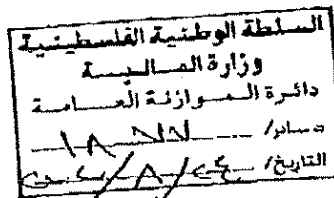 السلطة الوطنية الفلسطينية
وزارة المالية
دائرة الموازنة العامة
صادر/
التاريخ/ ٢٤/٨/